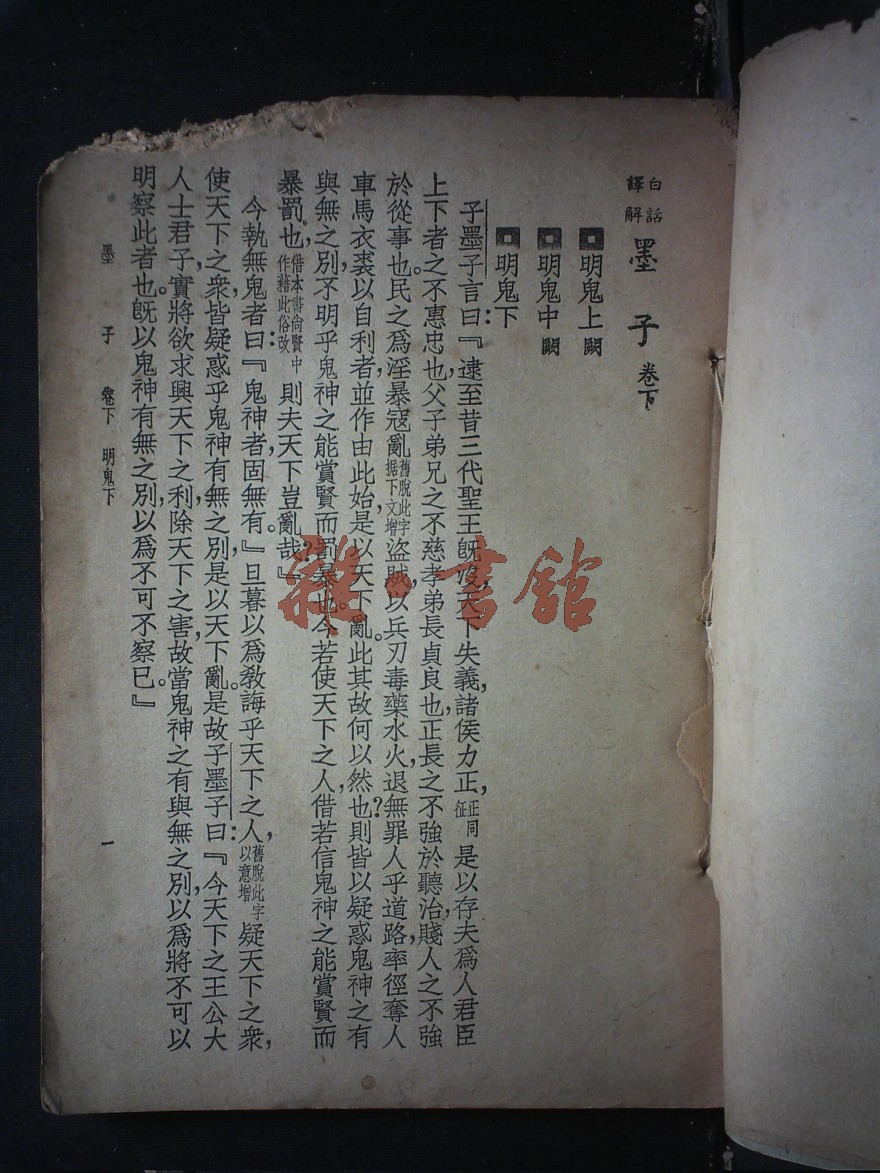 白話譯解 墨子 卷下
明鬼上 闕
明鬼中 闕
明鬼下
子墨子言曰：『逮至昔三代聖王旣沒，天下失義，諸侯力正，正同征 是以存夫爲人君臣
上下者之不惠忠也。父子弟兄之不慈孝弟長貞良也，正長之不強於聽治，賤人之不強
於從事也。民之爲淫暴寇亂舊脫此字据下文增盜賊，以兵刃毒藥水火，退無罪人乎道路率徑奪人
車馬衣裘以自利者，並作由此始，是以天下亂。此其故何以然也？則皆以疑惑鬼神之有
與無之別，不明乎鬼神之能賞賢而罰暴也。今若使天下之人，借若信鬼神之能賞賢而
暴罰也，借本書尙賢中作藉此俗改 則夫天下豈亂哉？』
今執無鬼者曰：『鬼神者固無有。』旦暮以爲敎誨乎天下之人，舊脫此字以意增 疑天下之衆，
使天下之衆，皆疑惑乎鬼神有無之別，是以天下亂。是故子墨子曰：『今天下之王公大
人士君子，實將欲求興天下之利，除天下之害，故當鬼神之有與無之別，以爲將不可以
明察此者也。旣以鬼神有無之別，以爲不可不察已。』
墨子 卷下 明鬼下 一
雜·書館